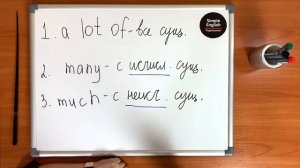 1. a lot of - все сущ.
Simple English
2. many - с исчисл. сущ.
3. much - с неисч. сущ.